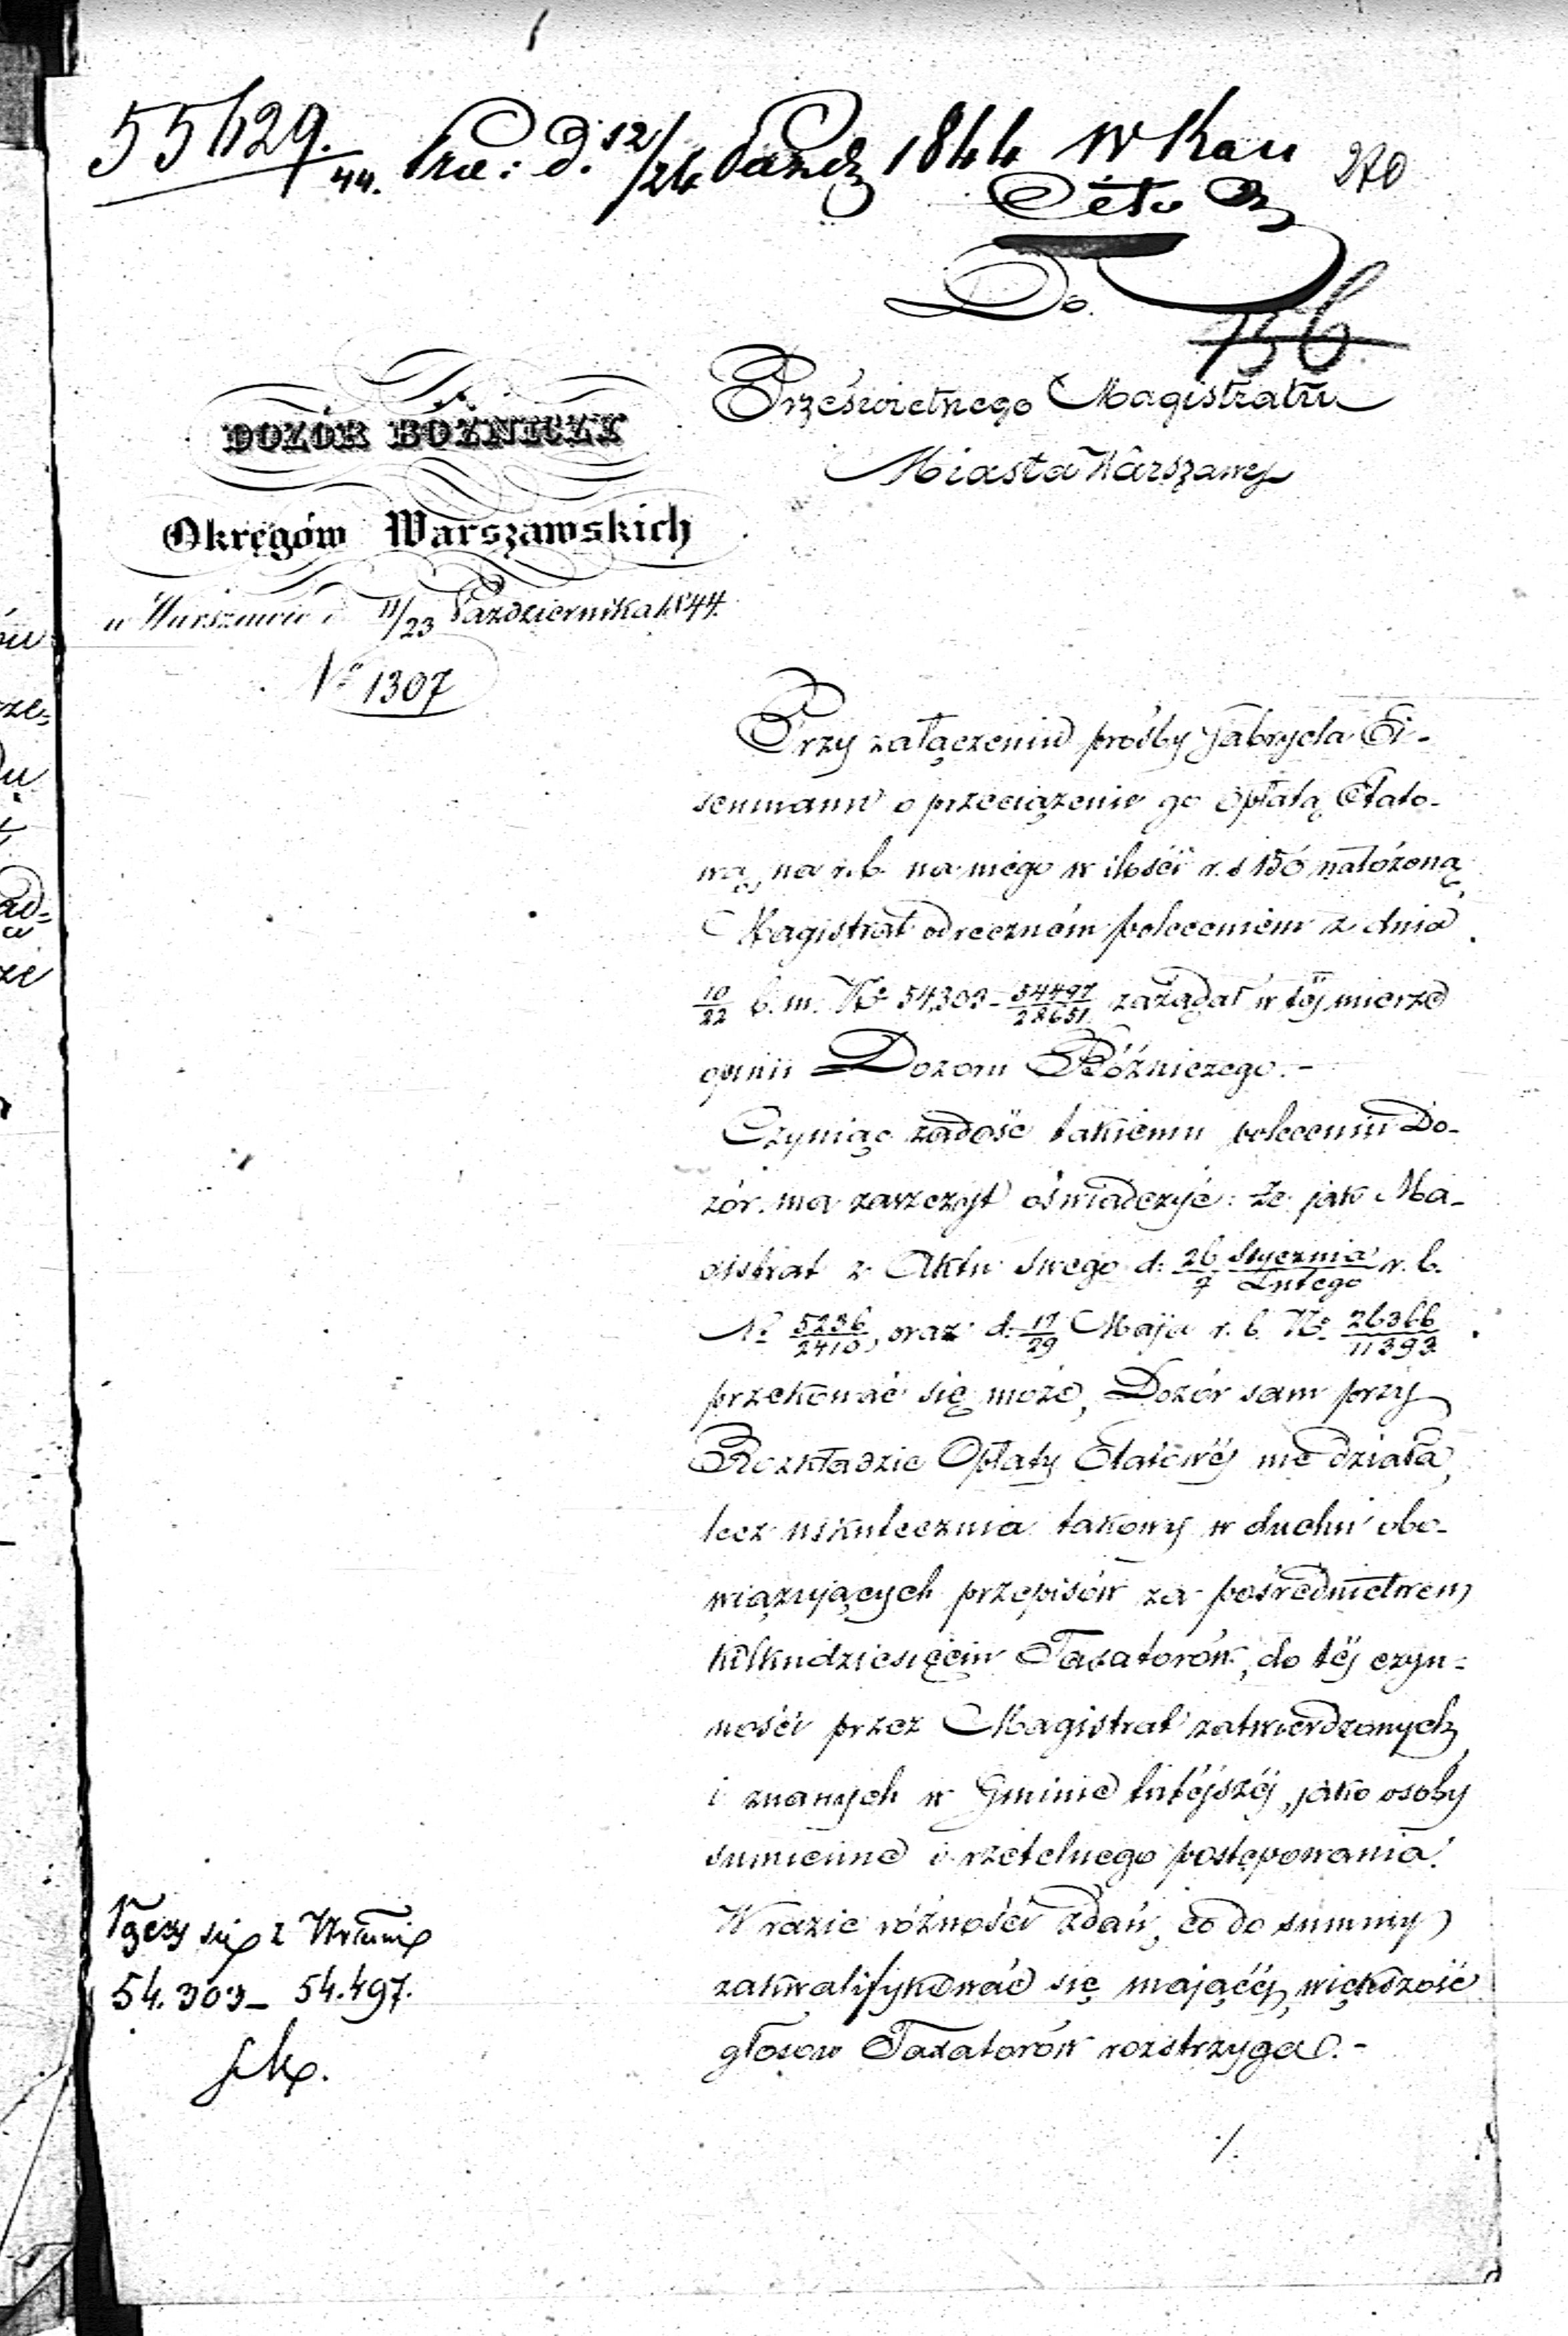 55429./44. Prae: d. 12/24 Pazdz 1844 W Kan 270
Do
156
Prześwietnego Magistratu
Miasta Warszawy
DOZÓR BÓŻNICZY
Okręgów Warszawskich
w Warszawie d. 11/23 Października 1844.
No 1307
Przy załączeniu prośby Gabryela Ei-
senmann o przeciążenie go Opłatą Etato-
wą, na r. b. na niego w ilości r. s 150 nałożoną,
Magistrat odrecznem poleceniem z dnia
10/22 b. m. No 54,303 - 54497/22651 zażądał w téj mierze
opinii Dozoru Bóżniczego. -
Czyniąc zadość takiemu poleceniu Do-
zór ma zaszczyt oświadczyć: że jak Ma-
gistrat z Aktu swego d: 26 Stycznia/7 Lutego r. b.
No 5236/2410, oraz d. 17/29 Maja r. b. No 26366/11393
przekonać się może, Dozór sam przy
Rozkładzie Opłaty Etatowéj nie działa,
lecz uskutecznia takowy w duchu obo-
wiązujących przepisów za pośrednictwem
kilkudziesięciu Taxatorów, do téj czyn-
ności przez Magistrat zatwierdzonych
i znanych w Gminie tutéjszéj, jako osoby
sumienne i rzetelnego postępowania.
W razie różności zdań, co do summy
zakwalifikować się mającéj, większość
głosow Taxatorów rozstrzyga. -
./.
łączy się z
54.303 - 54.497.